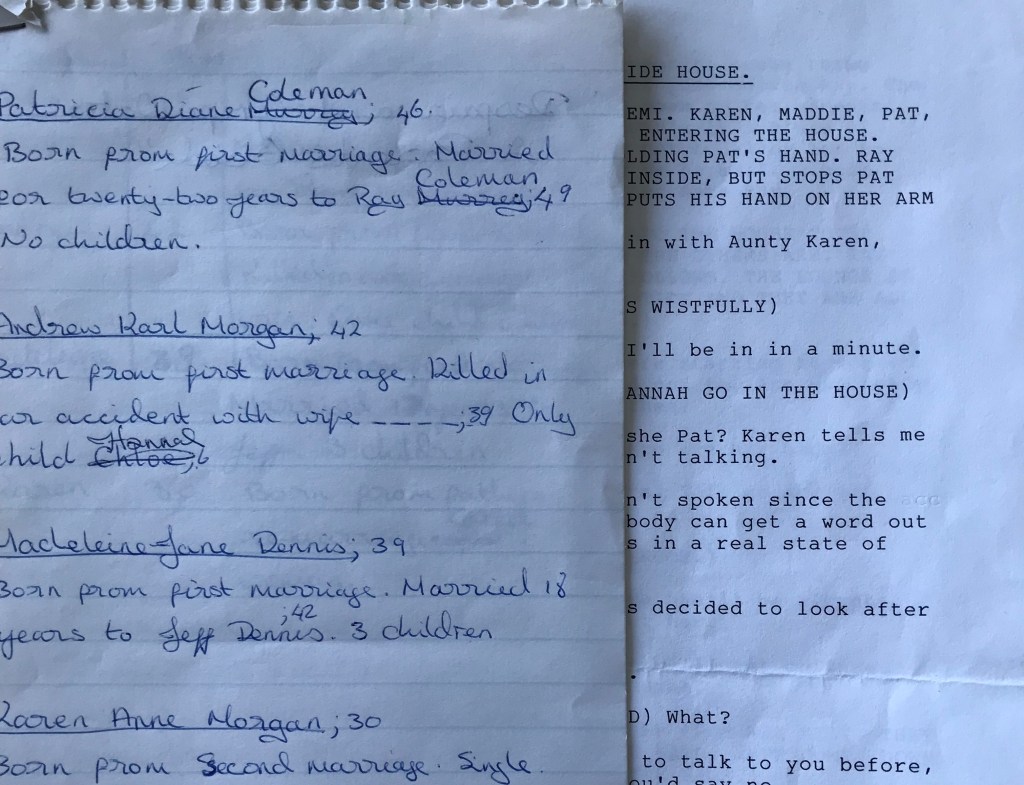 Coleman
Patricia Diane Murray; 46.
Born from first marriage. Married
for twenty-two years to Ray Murray; 49
Coleman
No children.
Andrew Karl Morgan; 42
Born from first marriage. Killed in
car accident with wife ----; 39 Only
child Chloe; 6
Hannah
Madeleine-Jane Dennis; 39
Born from first marriage. Married 18
years to Jeff Dennis. 3 children
; 42
Karen Anne Morgan; 30
Born from Second marriage. Single.
IDE HOUSE.
EMI. KAREN, MADDIE, PAT,
ENTERING THE HOUSE.
LDING PAT'S HAND. RAY
INSIDE, BUT STOPS PAT
PUTS HIS HAND ON HER ARM
in with Aunty Karen,
S WISTFULLY)
I'll be in in a minute.
ANNAH GO IN THE HOUSE)
she Pat? Karen tells me
n't talking.
n't spoken since the acc
body can get a word out
s in a real state of
s decided to look after
.
D) What?
to talk to you before,
ou'd say no